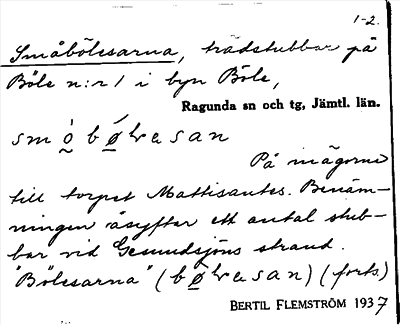 1-2.
Småbölessarna, trädstubbar på
Böle n:r 1 i byn Böle,
Ragunda sn och tg, Jämtl. län.
På mägorna
till torpet Mattisantes. Benäm-
ningen åsyftar ett antal stub-
bar vid Gesundsjöns strand.
"Bölessarna" (forts)
BERTIL FLEMSTRÖM 1937